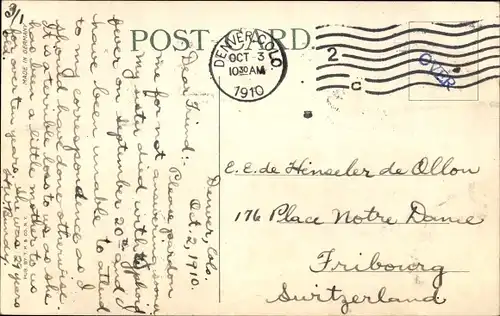 POST CARD.
DENVER, COLO.
OCT 3
10 30 AM
1910
2
C
OVER
Denver, Colo.
Oct. 2, 1910.
Dear Friend:
Please pardon
me for not answering sooner
my sister died with typhoid
fever on September 20th and I
have been unable to attend
to my correspondence as I
should have done otherwise.
It is a terrible loss to us as she
has been a little mother to us
for over ten years, she was 29 years
old.
9/1
E. E. de Hinseler de Ollon
176 Place Notre Dame
Fribourg
Switzerland
MADE IN GERMANY